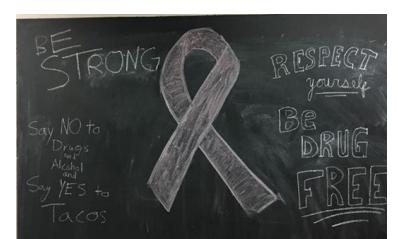 BE
STRONG
Say NO to
Drugs
and
Alcohol
and
Say YES to
Tacos
RESPECT
yourself
Be
DRUG
FREE